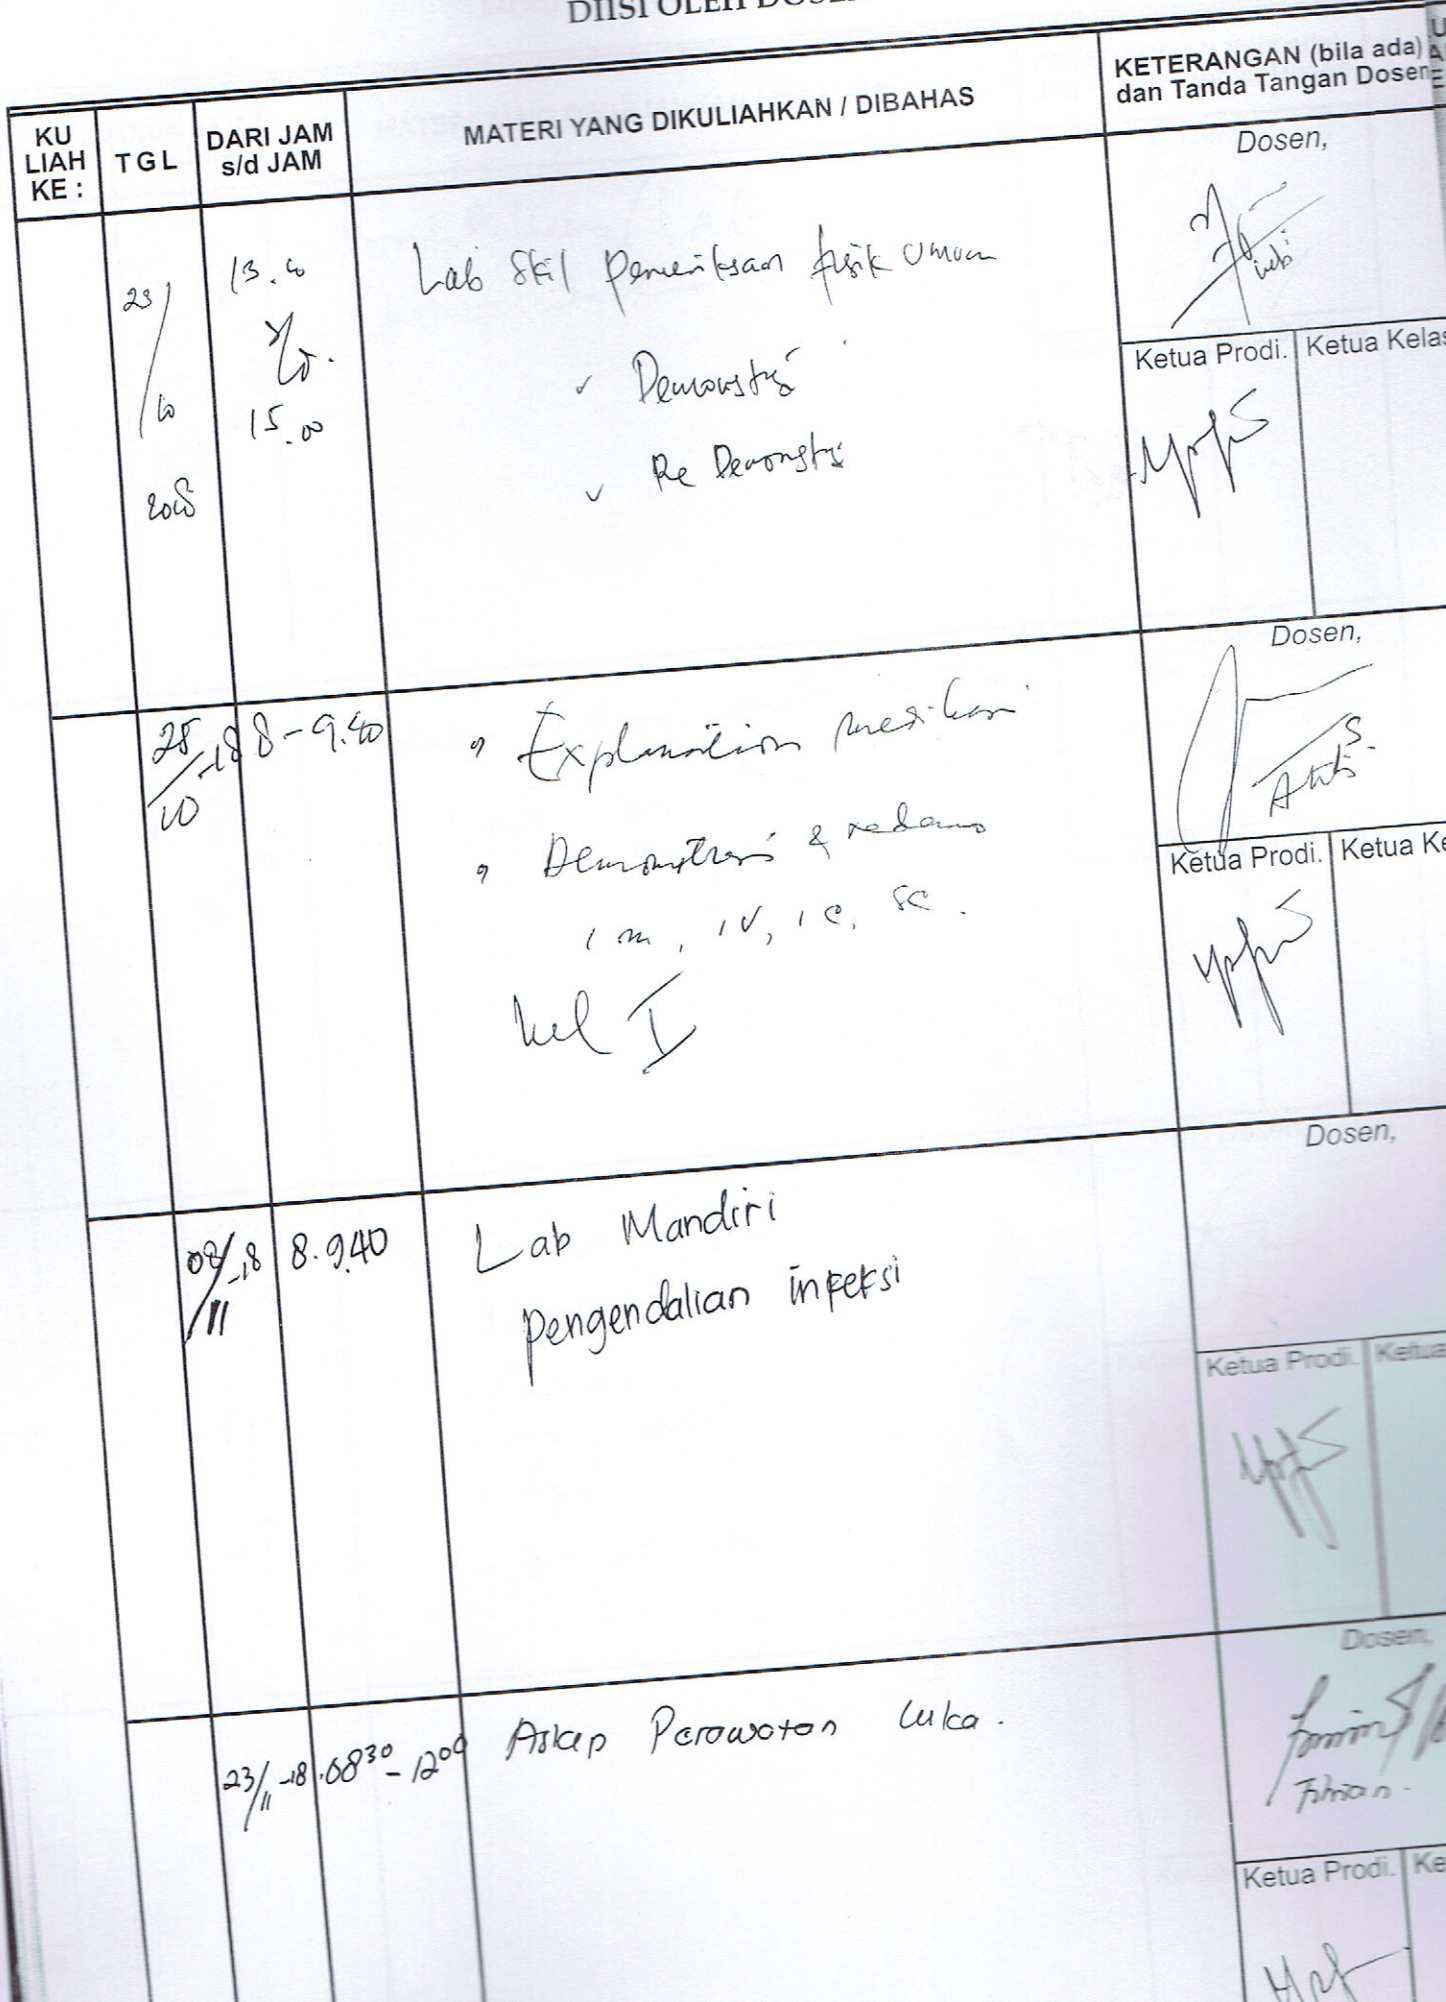 DIISI OLEH DOSE
KU LIAH KE :
TGL
DARI JAM s/d JAM
MATERI YANG DIKULIAHKAN / DIBAHAS
KETERANGAN (bila ada)
dan Tanda Tangan Dosen
23/10 2018
15.00
Lab Skil pemeriksaan fisik umum
✓ Demonstrasi
✓ Re Demonstrasi
Dosen,
Ketua Prodi.
Ketua Kelas
25/10-18
8-9.40
Explanation
Demonstrasi &
im, iv, ic, sc.
kel I
Dosen,
Ketua Prodi.
Ketua Ke
08/11-18
8.9.40
Lab Mandiri
pengendalian infeksi
Dosen,
Ketua Prodi.
Ketua
23/11-18
08³⁰-12⁰⁰
Askep Perawatan luka.
Dosen,
Ketua Prodi.
Ke